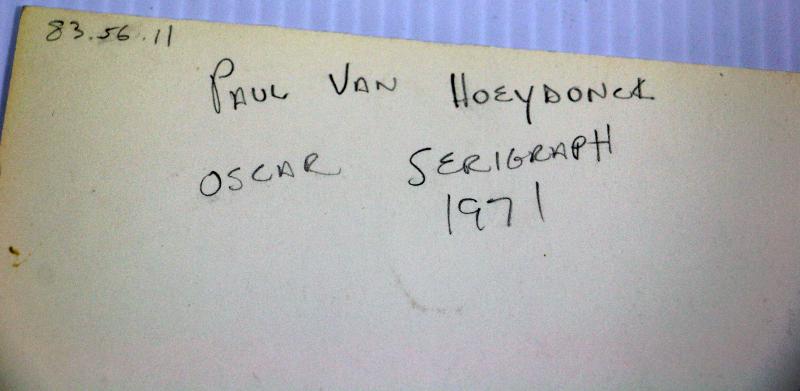 83.56.11
PAUL VAN HOEYDONCK
OSCAR SERIGRAPH
1971